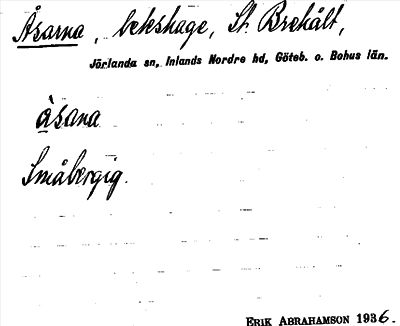 Åsarna, bekshage, St. Brehålt,
Jörlanda sn, Inlands Nordre hd, Göteb. o. Bohus län.
àsana
Småbergig.
ERIK ABRAHAMSON 1936.